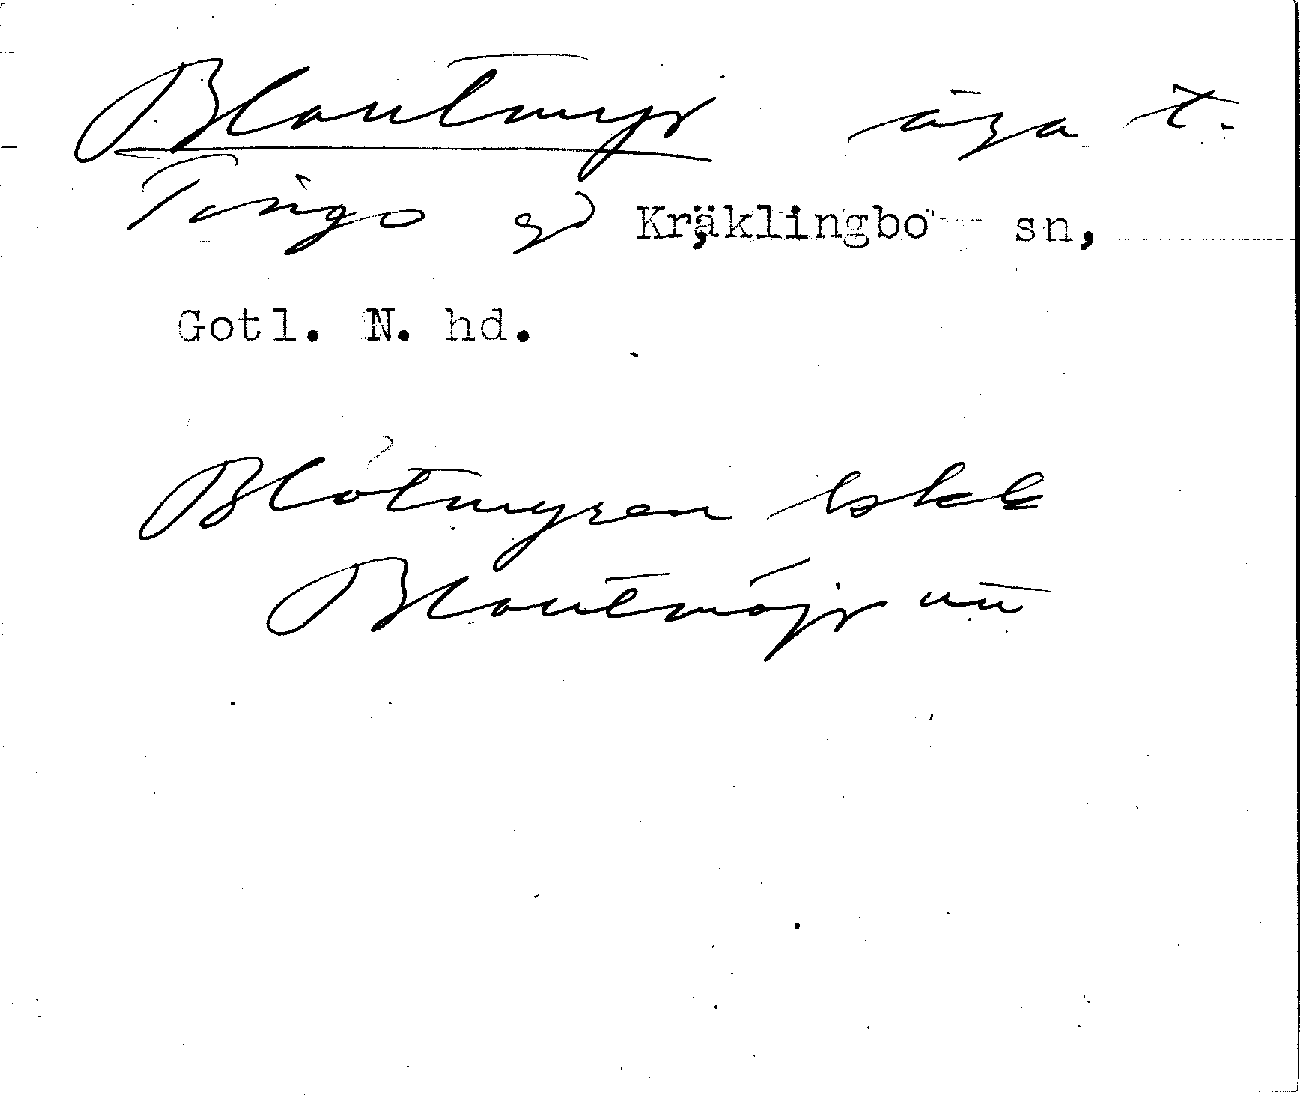 Blautmyr äga t.
Tängo gd Kräklingbo sn,
Gotl. N. hd.
Blötmyren lskk
Blautmöjr uu